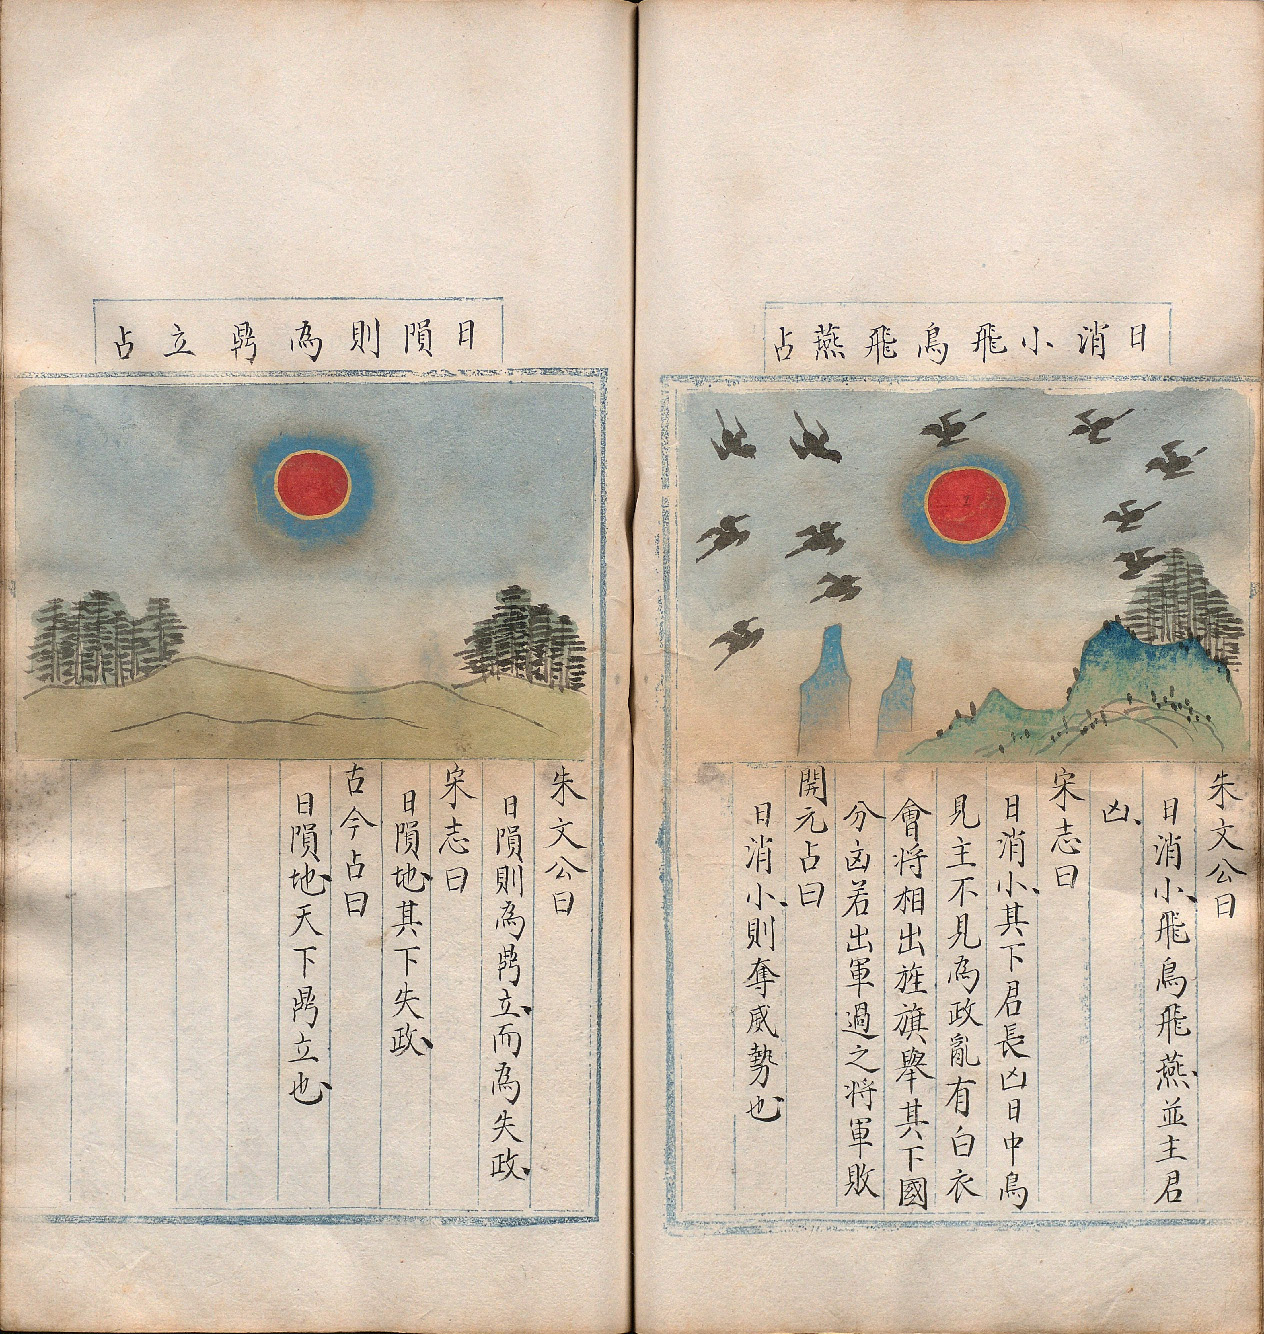 日消小飛鳥飛燕占
朱文公曰
日消小飛鳥飛燕並主君
凶
宋志曰
日消小其下君長凶日中烏
見主不見為政亂有白衣
會将相出旌旗舉其下國
分凶若出軍過之将軍敗
開元占曰
日消小則奪威勢也
日隕則為鼎立占
朱文公曰
日隕則為鼎立而為失政
宋志曰
日隕地其下失政
古今占曰
日隕地天下鼎立也